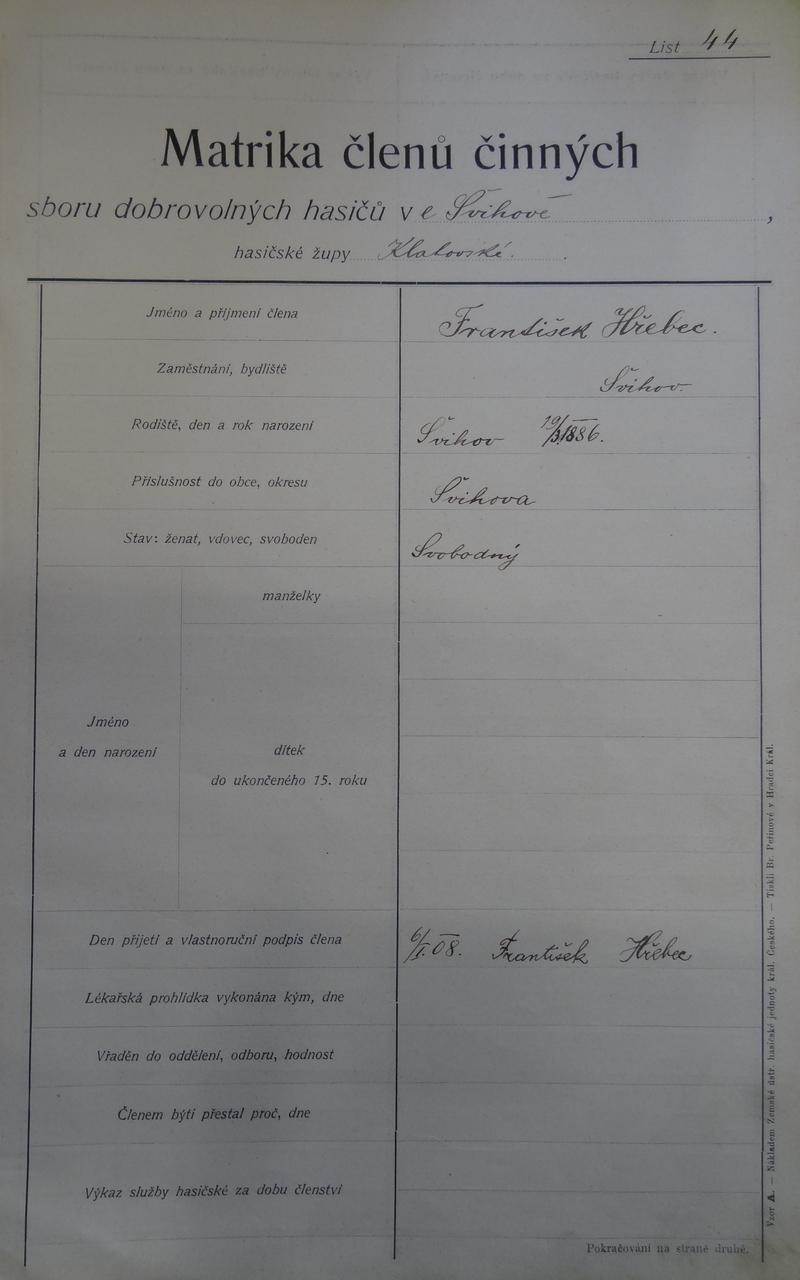 List 44
Matrika členů činných
sboru dobrovolných hasičů v e Švihově,
hasičské župy Klatovské.
Jméno a příjmení člena František Hřebec.
Zaměstnání, bydliště Švihov
Rodiště, den a rok narození Švihov 1886.
Příslušnost do obce, okresu Švihova
Stav: ženat, vdovec, svoboden Svobodný
manželky
Jméno
a den narození
dítek
do ukončeného 15. roku
Den přijetí a vlastnoruční podpis člena 6/I. 08. František Hřebec
Lékařská prohlídka vykonána kým, dne
Vřaděn do oddělení, odboru, hodnost
Členem býti přestal proč, dne
Výkaz služby hasičské za dobu členství
Pokračování na straně druhé.
Vzor A. — Nákladem Zemské ústř. hasičské jednoty král. Českého. — Tiskli Br. Peřinové v Hradci Král.